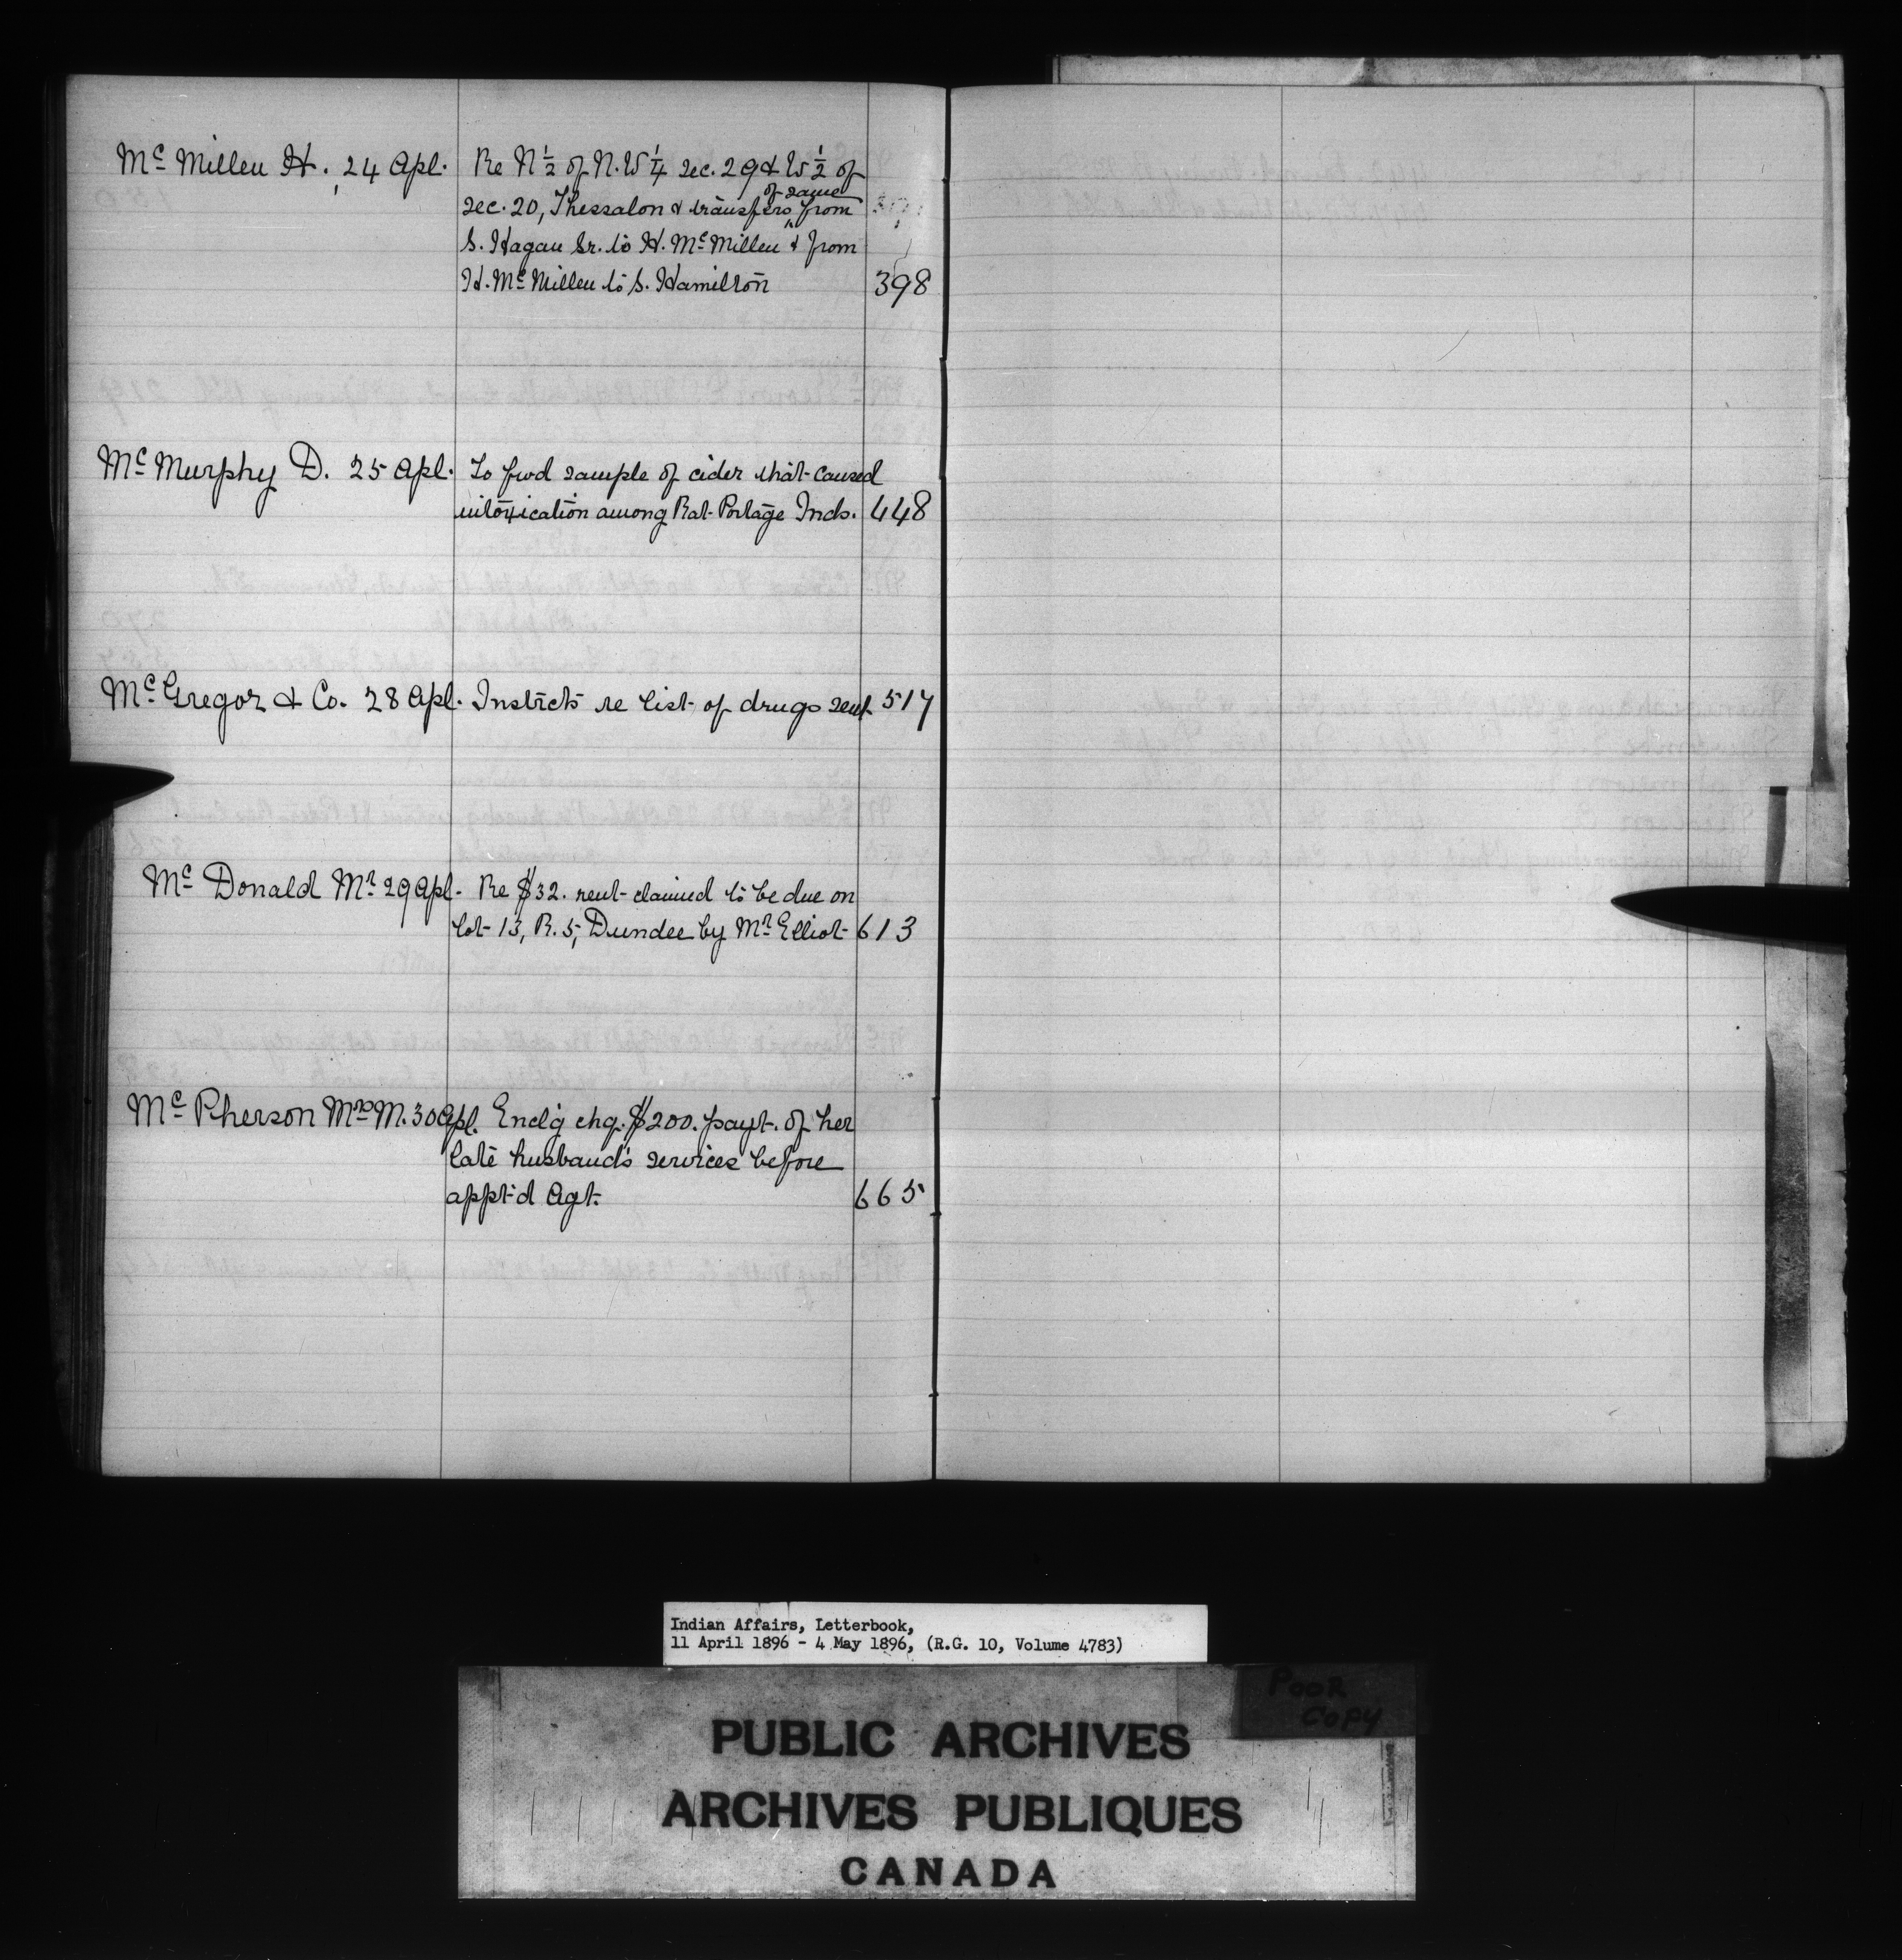 Mc Millen H. 24 Apl. Re N ½ of N.W ¼ Sec. 29 & W ½ of
of same
Sec. 20, Thessalon & transfers from
S. Hagan Sr. to H. Mc Millen & from
H. Mc Millen to S. Hamilton 398
Mc Murphy D. 25 Apl. To fwd sample of cider that caused
intoxication among Rat Portage Inds. 448
Mc Gregor & Co. 28 Apl. Instrcts re list of drugs sent 517
Mc Donald Mr 29 Apl. Re $32. rent claimed to be due on
lot 13, R. 5, Dundee by Mr Elliot 613
Mc Pherson Mrs M. 30 Apl. Enclg chq. $200. payt. of her
late husband's services before
appt'd Agt. 665
Indian Affairs, Letterbook,
11 April 1896 - 4 May 1896, (R.G. 10, Volume 4783)
POOR
COPY
PUBLIC ARCHIVES
ARCHIVES PUBLIQUES
CANADA